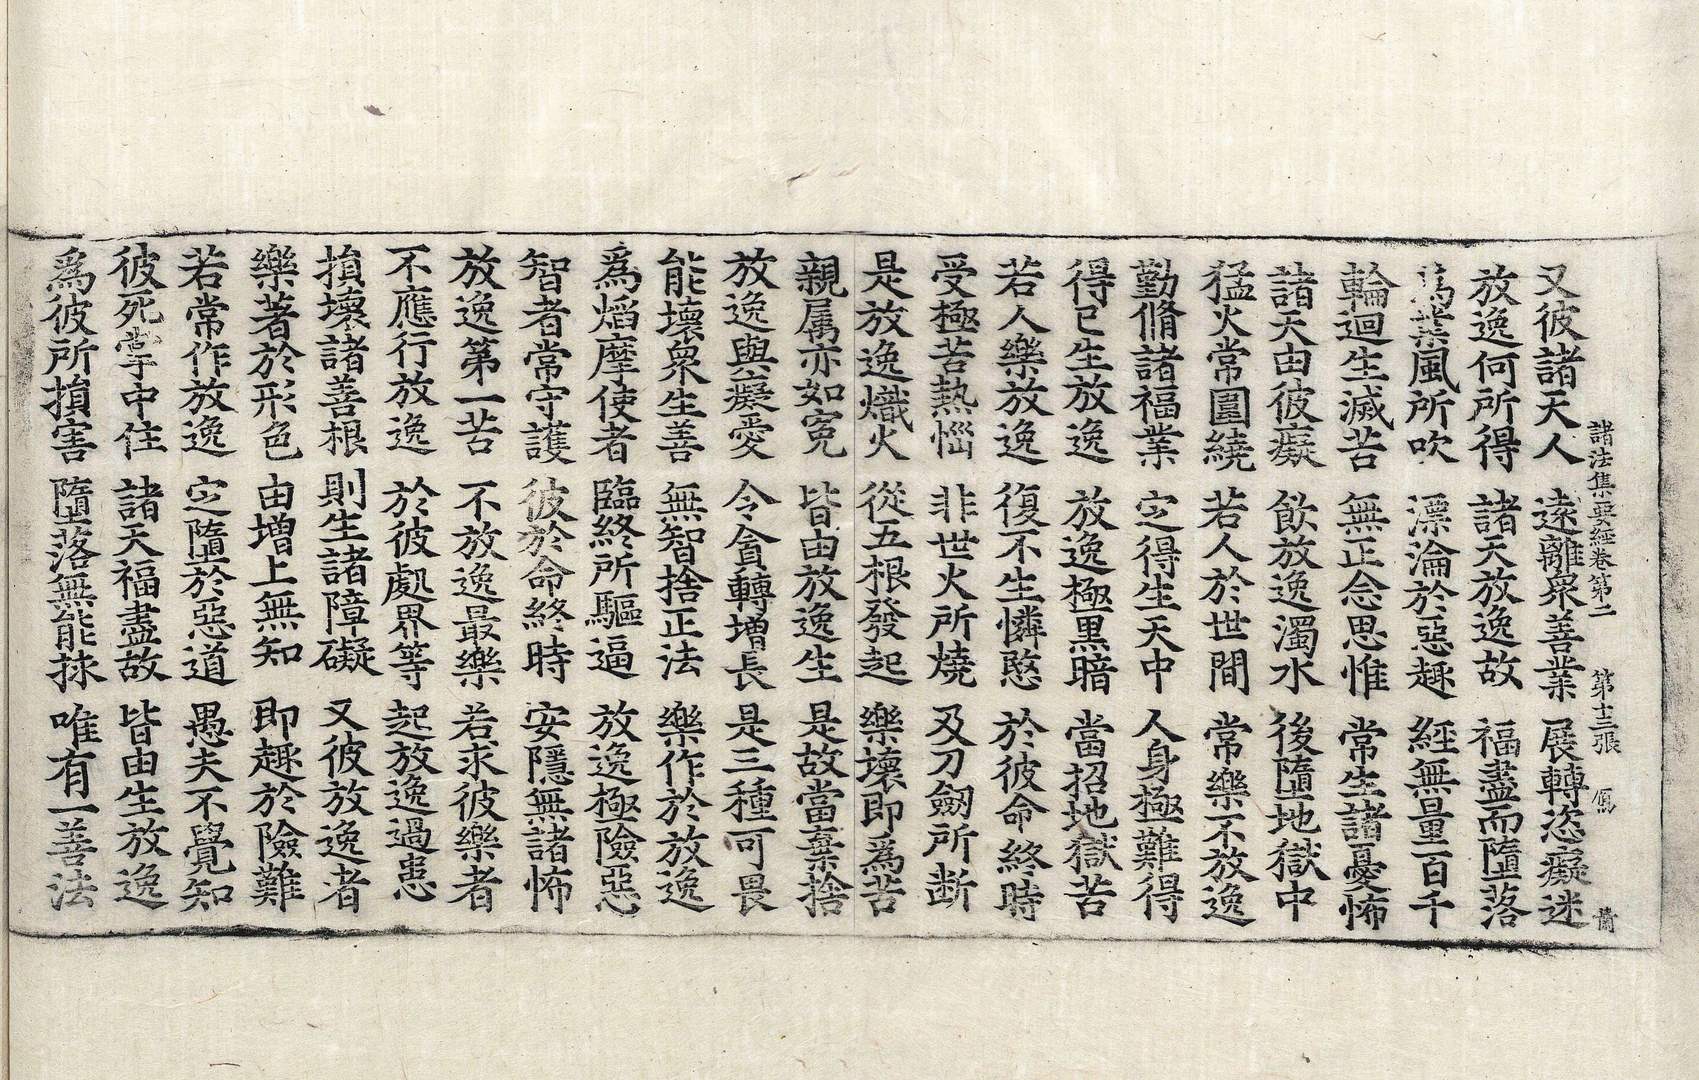 諸法集要經卷第二 第十三張
又彼諸天人 遠離衆善業 展轉恣癡迷
放逸何所得 諸天放逸故 福盡而墮落
爲業風所吹 漂淪於惡趣 經無量百千
輪迴生滅苦 無正念思惟 常生諸憂怖
諸天由彼癡 飲放逸濁水 後墮地獄中
猛火常圍繞 若人於世間 常樂不放逸
勤脩諸福業 㝎得生天中 人身極難得
得已生放逸 放逸極黒暗 當招地獄苦
若人樂放逸 復不生憐愍 於彼命終時
受極苦熱惱 非世火所燒 及刀劒所断
是放逸熾火 從五根發起 樂壞即爲苦
親属亦如寃 皆由放逸生 是故當棄捨
放逸與癡愛 令貪轉增長 是三種可畏
能壞衆生善 無智捨正法 樂作於放逸
爲焰摩使者 臨終所驅逼 放逸極險惡
智者常守護 彼於命終時 安隱無諸怖
放逸第一苦 不放逸最樂 若求彼樂者
不應行放逸 於彼處界等 起放逸過患
損壞諸善根 則生諸障礙 又彼放逸者
樂著於形色 由增上無知 即趣於險難
若常作放逸 㝎墮於惡道 愚夫不覺知
彼死掌中住 諸天福盡故 皆由生放逸
爲彼所損害 墮落無能捄 唯有一善法